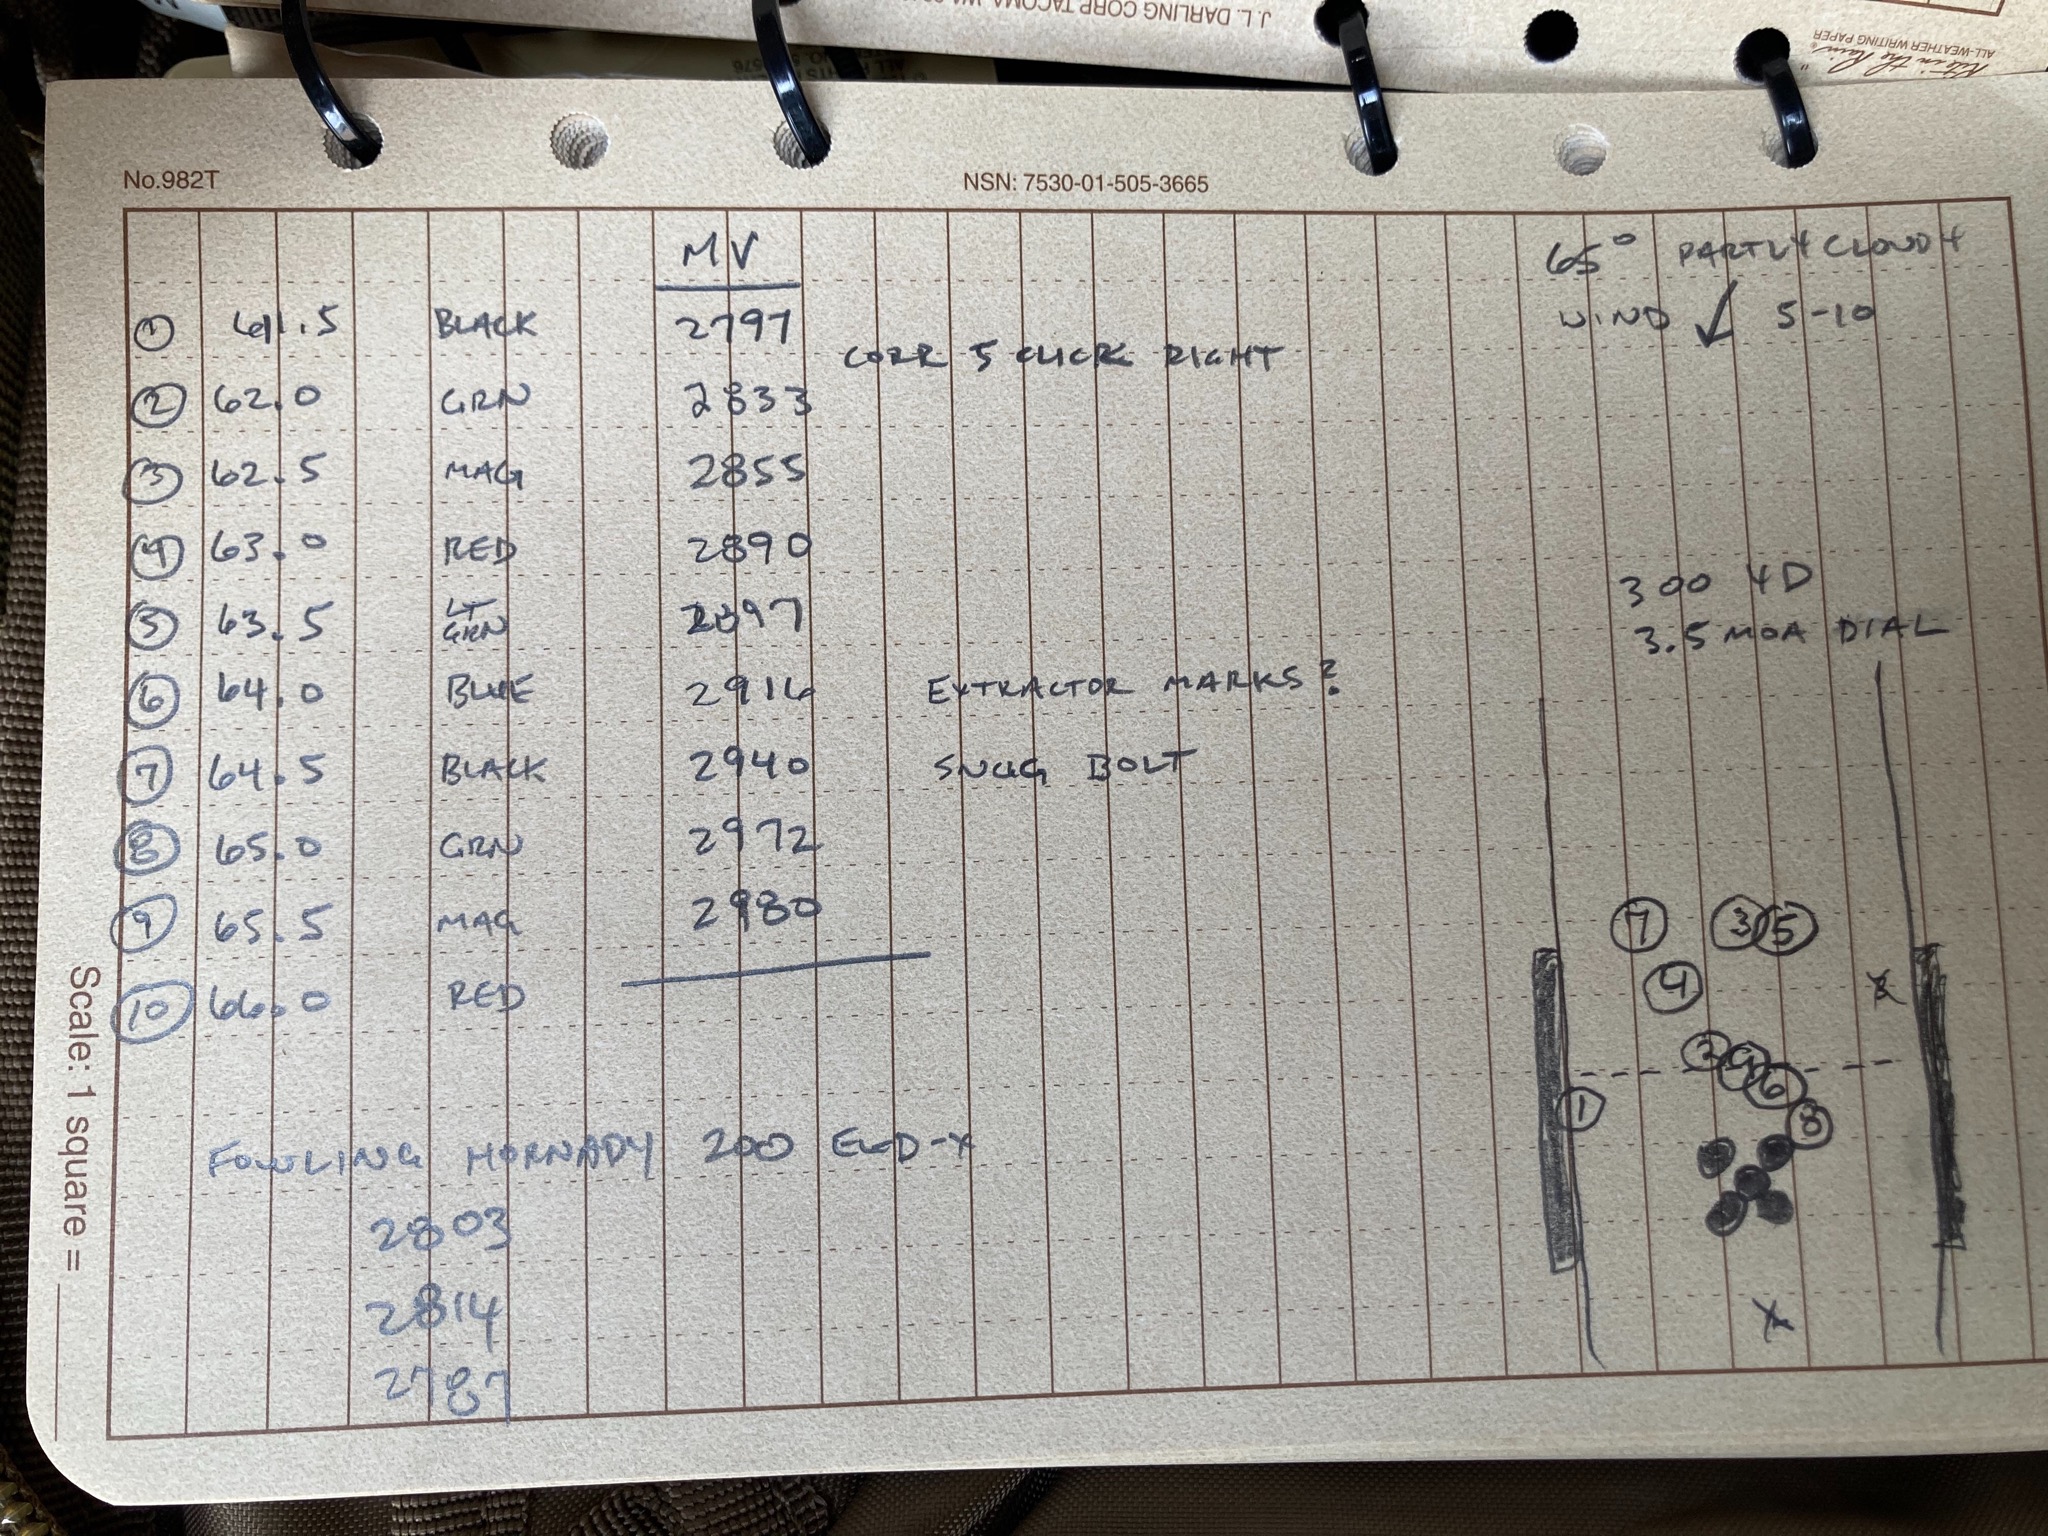 J. L. DARLING CORP TACOMA, WA
Rite in the Rain
ALL-WEATHER WRITING PAPER
No.982T
NSN: 7530-01-505-3665
MV
65° PARTLY CLOUDY
WIND ↙ 5-10
① 61.5 BLACK 2797
CORR 5 CLICK RIGHT
② 62.0 GRN 2833
③ 62.5 MAG 2855
④ 63.0 RED 2890
300 YD
⑤ 63.5 LT GRN 2897
3.5 MOA DIAL
⑥ 64.0 BLUE 2916 EXTRACTOR MARKS?
⑦ 64.5 BLACK 2940 SNUG BOLT
⑧ 65.0 GRN 2972
⑨ 65.5 MAG 2980
⑩ 66.0 RED
⑦ ③ ⑤
④ X
② ⑨ ⑥
① ⑧
X
FOWLING HORNADY 200 ELD-X
2803
2814
2787
Scale: 1 square =